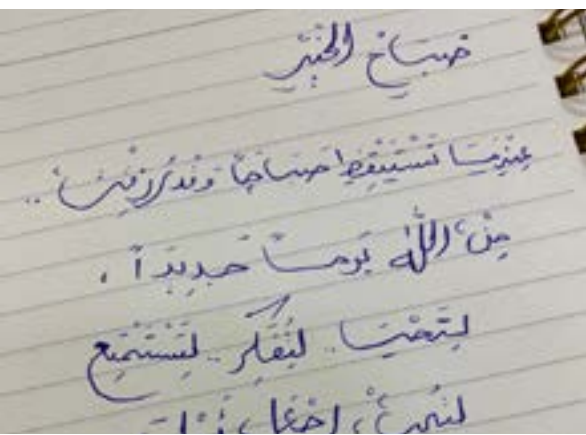 صباح الخير
عندما تستيقظ صباحاً وقد رزقت ..
من الله يوماً جديداً ،
لتحيا .. لتفكر .. لتستمتع